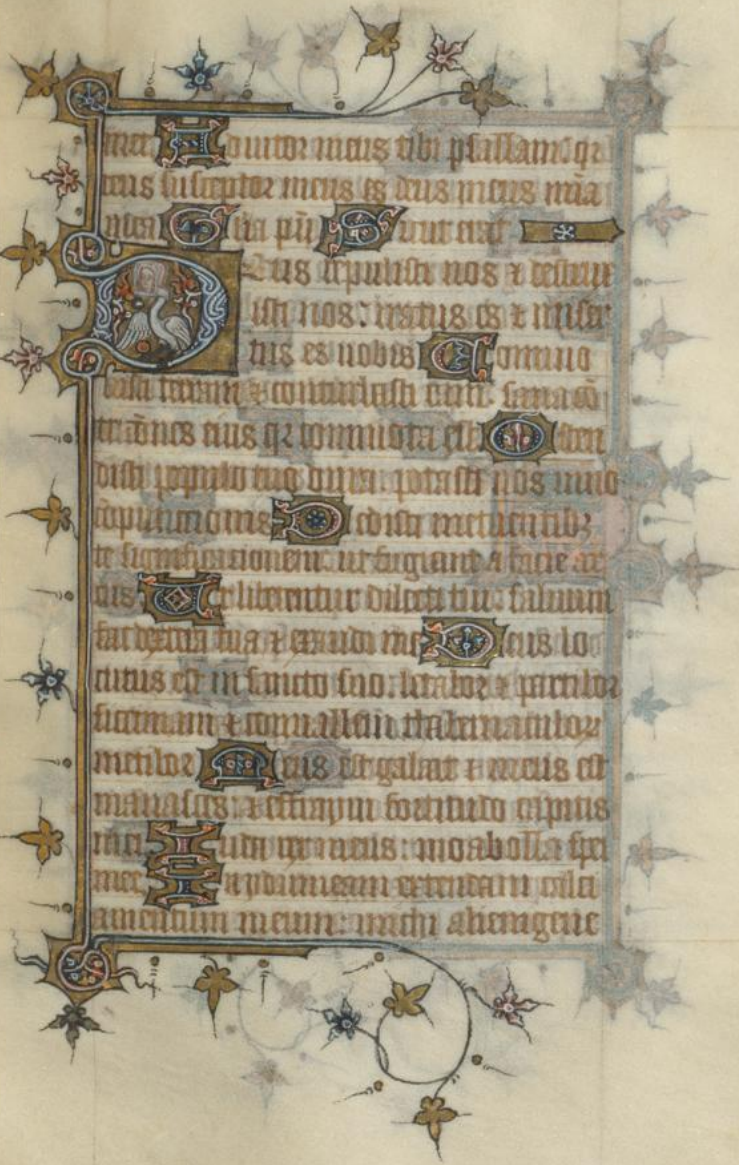 mei Adiutor meus tibi psallam: qr
deus susceptor meus es deus meus mīa
mea Glīa prī Sicut erat
Deus repulisti nos & destrux
isti nos: iratus es & miser
tus es nobis Commo
uisti terram & conturbasti eam: sana cō
triōnes eius qr commota est Osten
disti populo tuo dura: potasti nos uino
cōpunctionis Dedisti metuentibꝫ
te significationem: ut fugiant a facie ar
cus Ut liberentur dilecti tui: saluum
fac dextera tua & exaudi me Deus lo
cutus est in sancto suo: letabor & partibor
sicimam & conuallem thabernaculoꝝ
metibor Meus est galaat & meus est
manasses: & effraym fortitudo capitis
mei Iuda rex meus: moab olla spei
mee In ydumeam extendam calci
amentum meum: michi alienigene